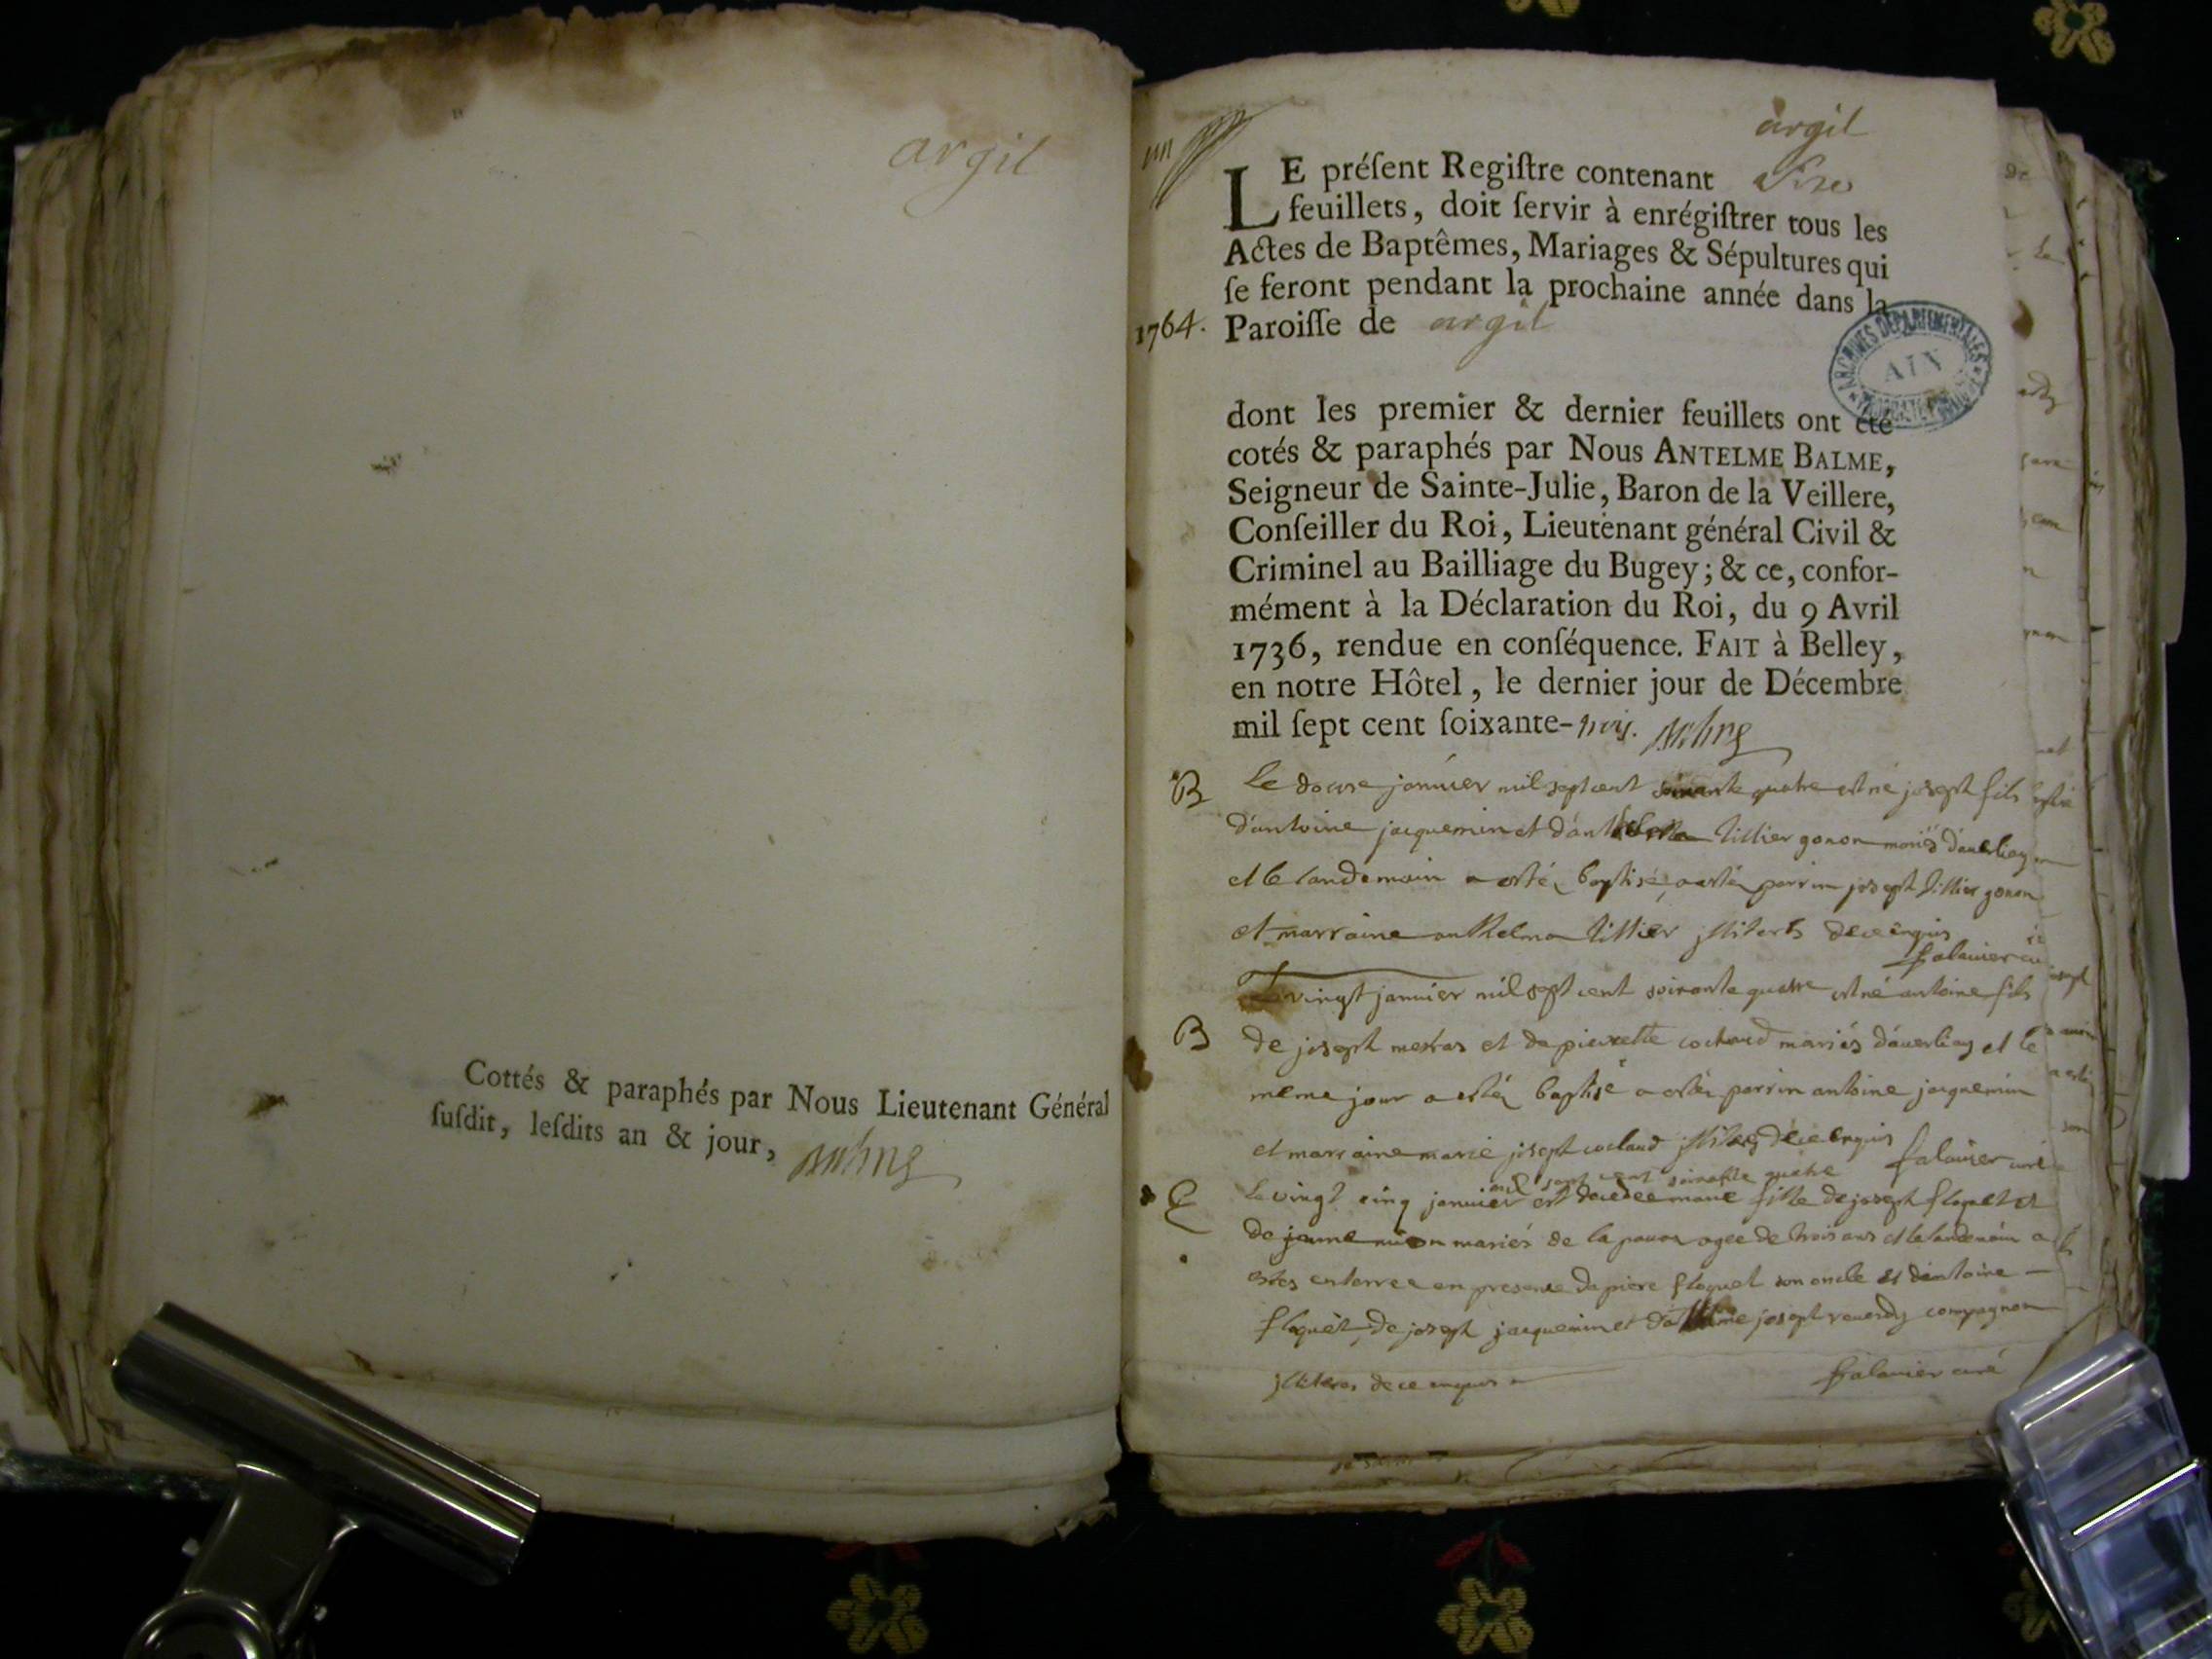 argil
Cottés & paraphés par Nous Lieutenant Général
ſuſdit, leſdits an & jour,
argil
LE préſent Regiſtre contenant
feuillets, doit ſervir à enrégiſtrer tous les
Actes de Baptêmes, Mariages & Sépultures qui
ſe feront pendant la prochaine année dans la
1764. Paroiſſe de argil
ARCHIVES DÉPARTEMENTALES
AIN
dont les premier & dernier feuillets ont été
cotés & paraphés par Nous ANTELME BALME,
Seigneur de Sainte-Julie, Baron de la Veillere,
Conſeiller du Roi, Lieutenant général Civil &
Criminel au Bailliage du Bugey; & ce, confor-
mément à la Déclaration du Roi, du 9 Avril
1736, rendue en conſéquence. FAIT à Belley,
en notre Hôtel, le dernier jour de Décembre
mil ſept cent ſoixante-trois.
B Le douse janvier mil sept cent soixante quatre est né joseph fils
d'antoine jacquemin et tillier gonon mariés
et le landemain a esté baptisé, a esté parrin joseph tillier gonon
et marraine anthelma tillier illiterés de ce enquis
vingt janvier mil sept cent soixante quatre est né antoine fils
B de joseph mestras et de pierrette cochaud mariés et le
meme jour a esté baptisé a esté parrin antoine jacquemin
et marraine marie joseph de ce enquis curé
mil sept cent soixante quatre
Le vingt cinq janvier est decedee marie fille de joseph floquet et
de mariés de agée de trois ans et le landemain a
estes enterree en presence de piere floquet son oncle et d'antoine
floquet, de joseph jacquemin et joseph compagnon
illiterés de ce enquis curé